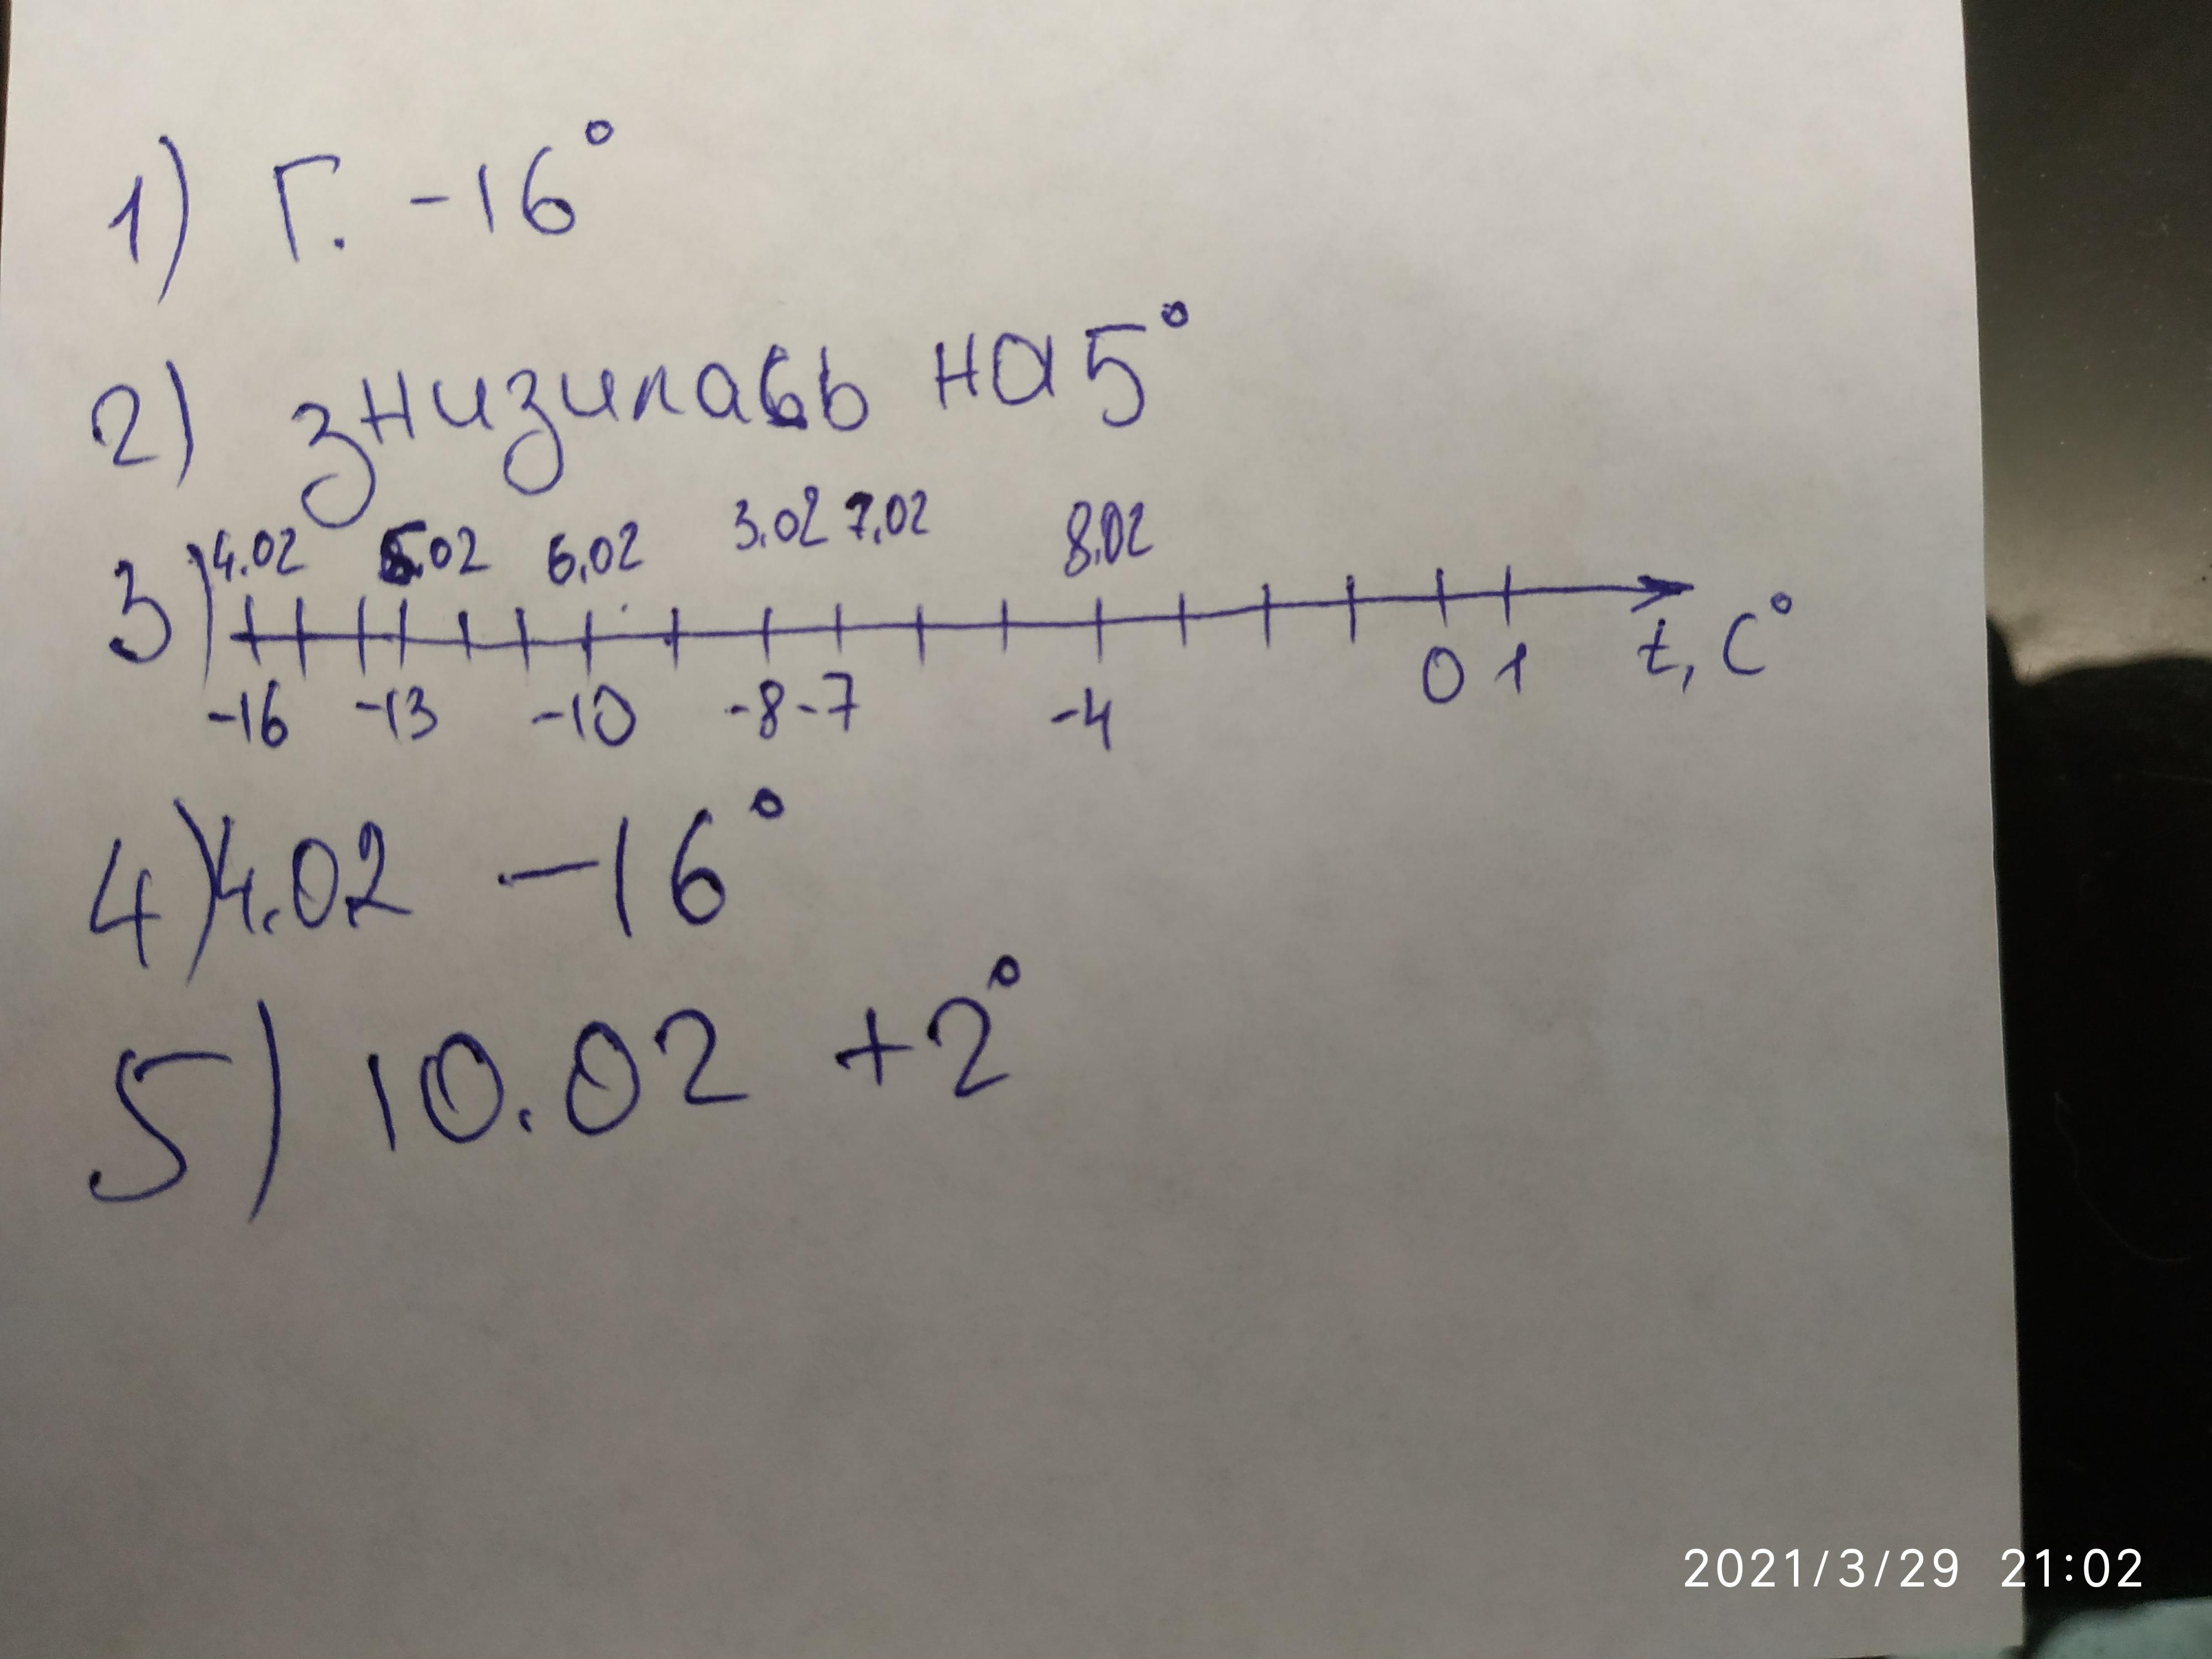 1) Г. -16°
2) знизилась на 5°
4.02 5.02 6.02 3.02 7.02 8.02
3)
-16 -13 -10 -8 -7 -4 0 1 t, C°
4) 4.02 -16°
5) 10.02 +2°
2021/3/29 21:02